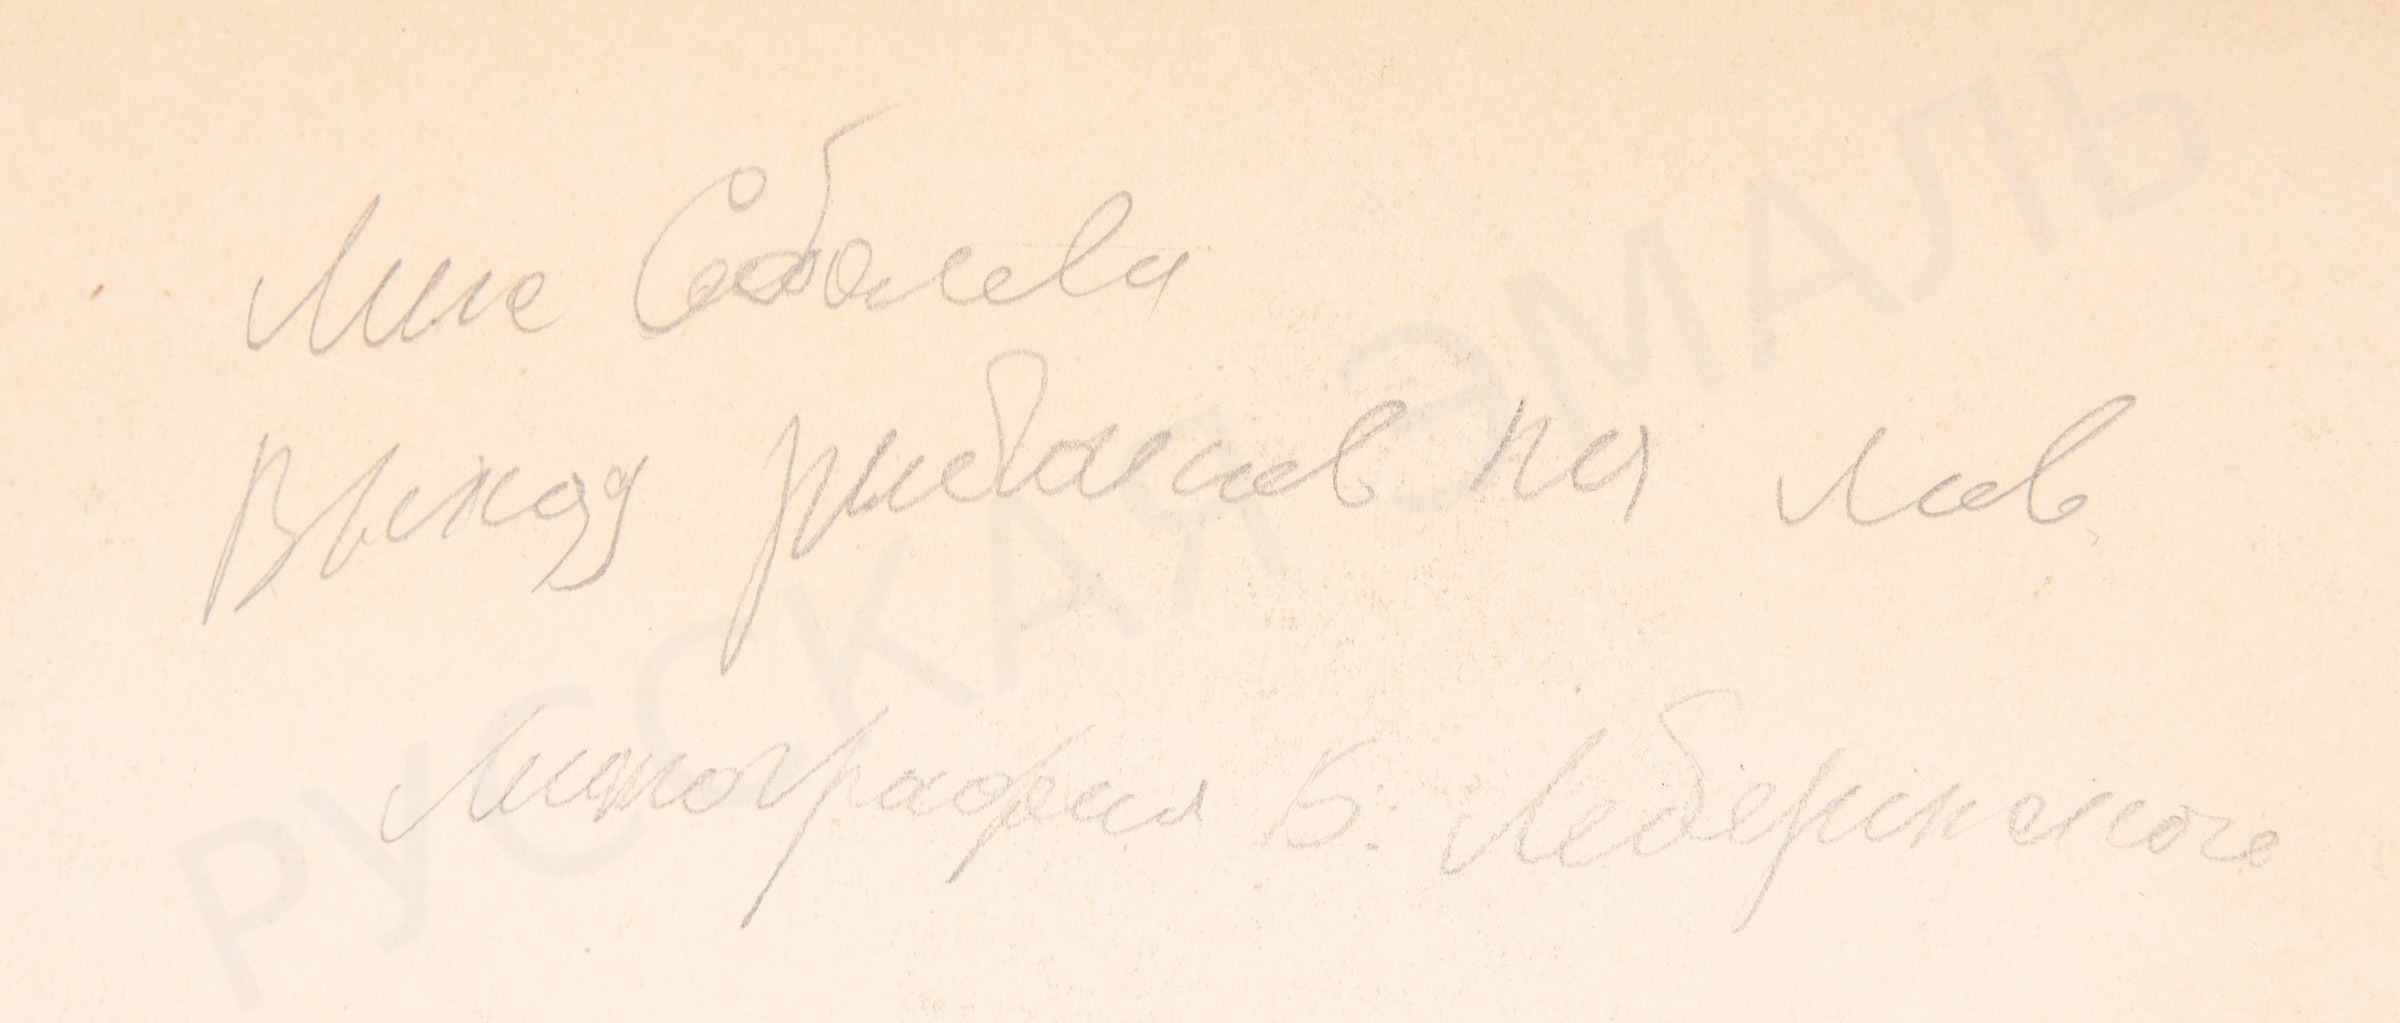 Мис Соболева
Выход рыбаков на лов
Литография Б. Леберинского
РУССКАЯ ЭМАЛЬ